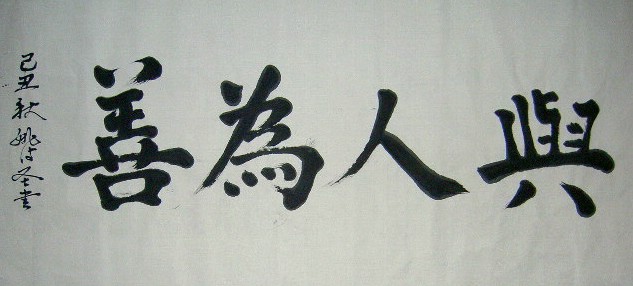 與人為善
己丑秋姚冬书